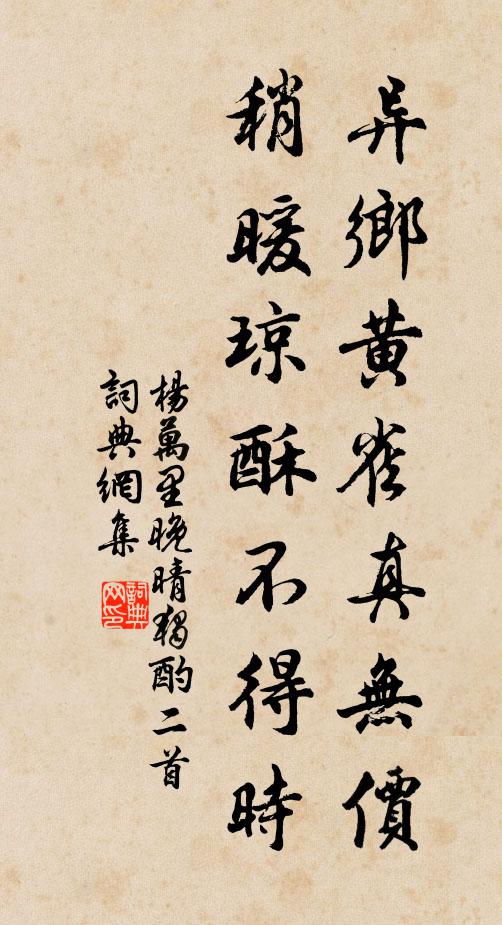 异鄉黄雀真無價
稍暖琼酥不得時
楊萬里晚晴獨酌二首
詞典網集
詞典
网印